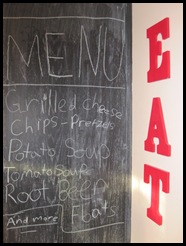 MENU
Grilled Cheese
Chips - Pretzels
Potato Soup
Tomato Soup
Root Beer
Floats
And more
EAT